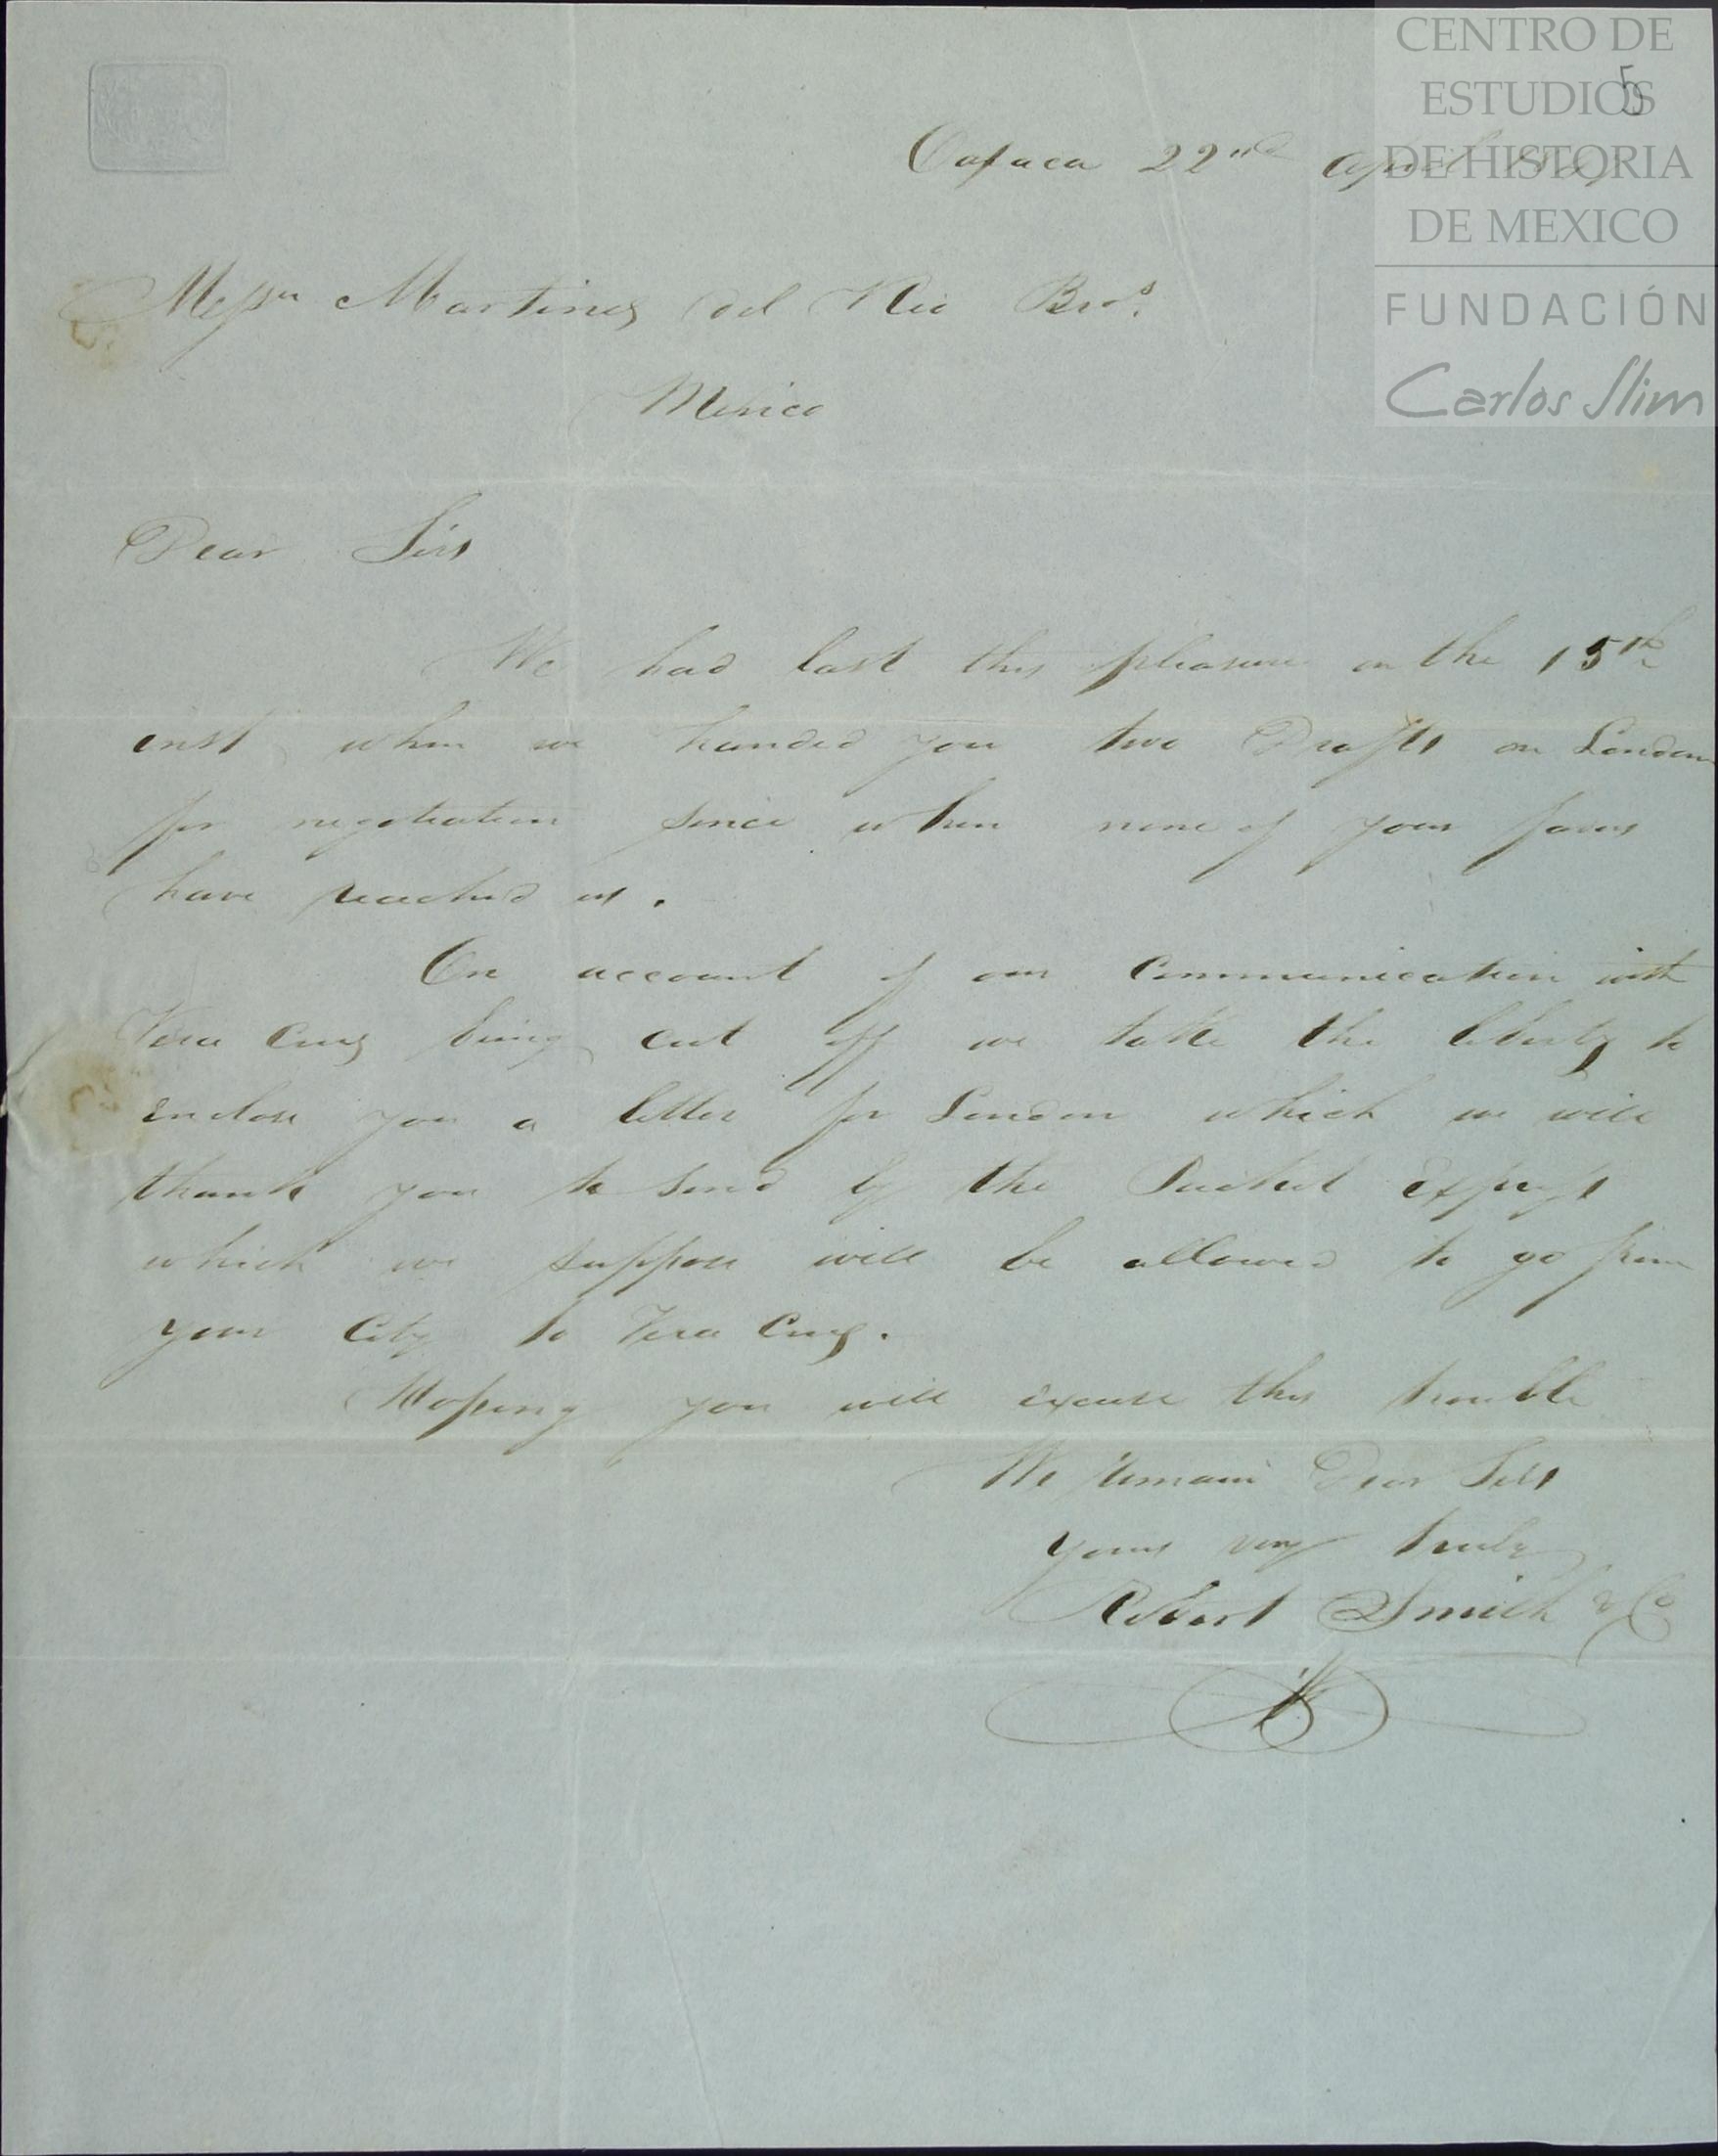 CENTRO DE
ESTUDIOS
DE HISTORIA
DE MEXICO
FUNDACIÓN
Carlos Slim
5
Oajaca 22nd April
Messrs Martinez del Rio Bros.
Mexico
Dear Sirs
We had last this pleasure on the 15th
inst when we handed you two Drafts on London
for negotiation since when none of your favors
have reached us.
On account of our Communication with
Vera Cruz being cut off we take the liberty to
enclose you a letter for London which we will
thank you to send by the Packet Express
which we suppose will be allowed to go from
your City to Vera Cruz.
Hoping you will excuse this trouble
We remain Dear Sirs
yours very truly
Robert Smith & Co